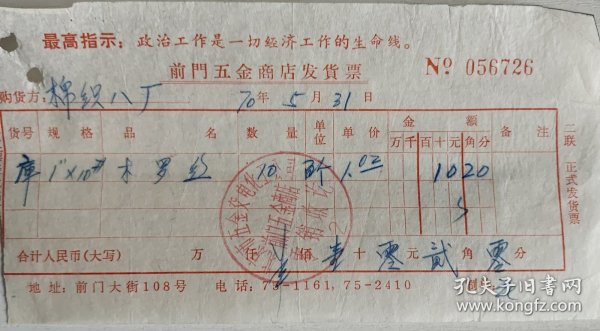 最高指示：政治工作是一切经济工作的生命线。
前門五金商店发货票
№ 056726
购货方：棉织八厂 70年5月31日
货号 规格 品名 数量 单位 单价 金额 备注
万千百十元角分
库 1"×10# 木罗丝 10 1.02 10 20
合计人民币（大写） 万 仟 佰 壹十零元贰角零分
地址：前门大街108号 电话：75-1161，75-2410
二联 正式发货票
孔夫子旧书网
kongfz.com